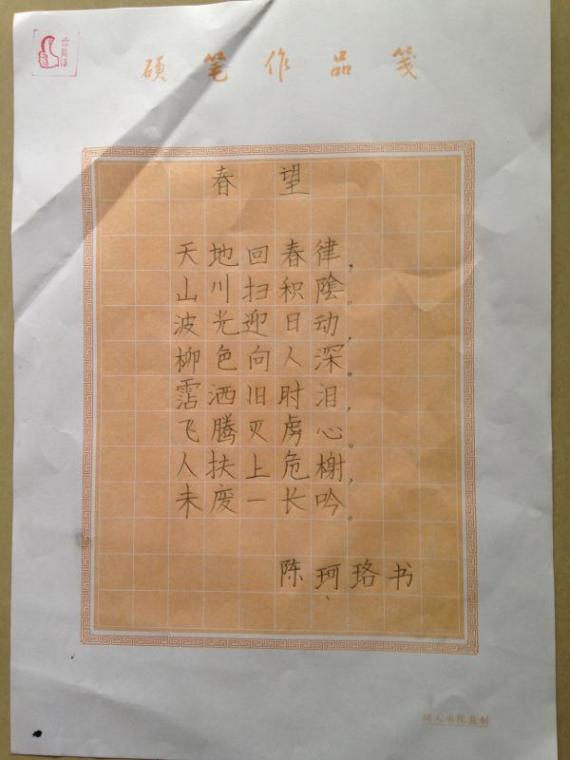 硕笔作品笺
春望
天地回春律，
山川扫积陰。
波光迎日动，
柳色向人深。
霑洒旧时泪，
飞腾灭虏心。
人扶上危榭，
未废一长吟。
陈珂珞书